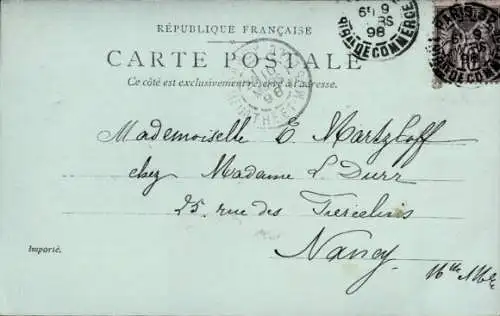 RÉPUBLIQUE FRANÇAISE
CARTE POSTALE
Ce côté est exclusivement réservé à l'adresse.
6E 9
MARS
98
DE COMMERCE
PARIS
98
DE COMMERCE
98
MEURTHE-ET-M
Mademoiselle E. Martzloff
chez Madame L. Durr
25, rue des Tiercelins
Nancy
Mthe
Importé.